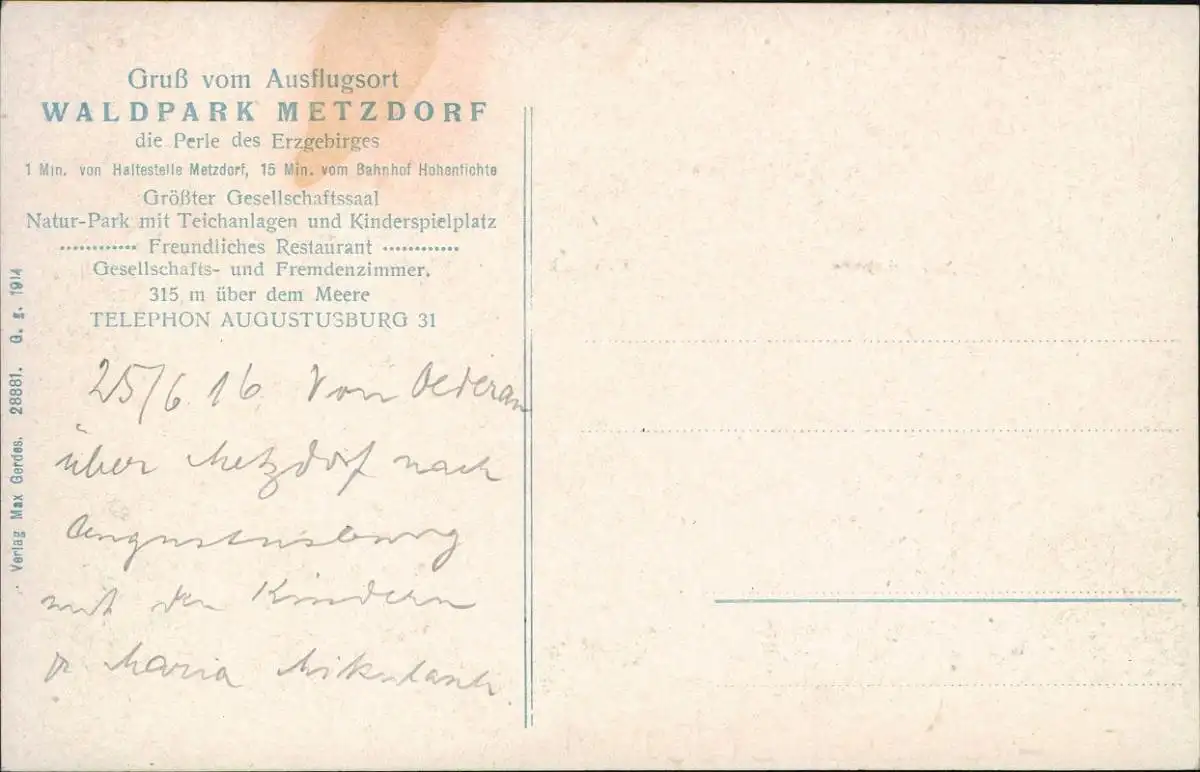 Gruß vom Ausflugsort
WALDPARK METZDORF
die Perle des Erzgebirges
1 Min. von Haltestelle Metzdorf, 15 Min. vom Bahnhof Hohenfichte
Größter Gesellschaftssaal
Natur-Park mit Teichanlagen und Kinderspielplatz
Freundliches Restaurant
Gesellschafts- und Fremdenzimmer.
315 m über dem Meere
TELEPHON AUGUSTUSBURG 31
25/6 16 Von Oederan
über Metzdorf nach
Augustusburg
mit den Kindern
Maria
Verlag Max Gerdes. 28881. G. g. 1914